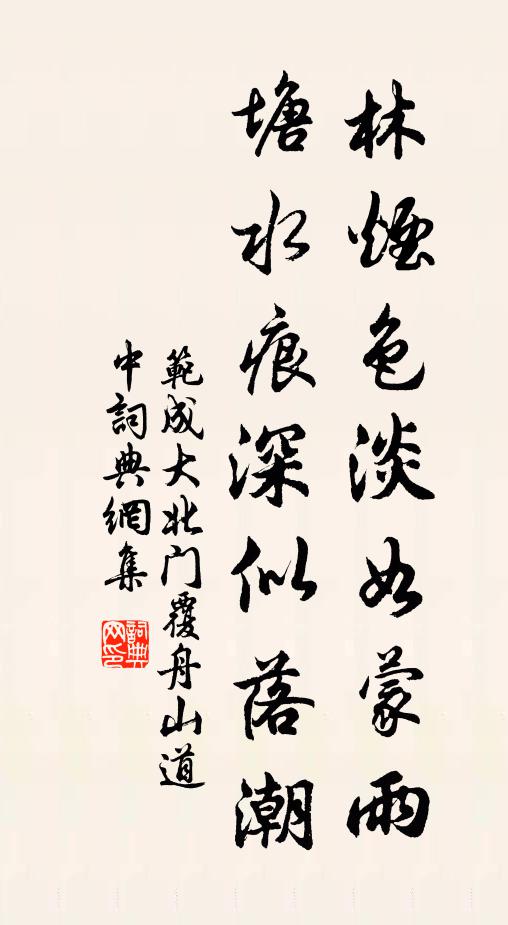 林煙色淡如蒙雨
塘水痕深似落潮
範成大北门覆舟山道
中詞典網集
詞典网印